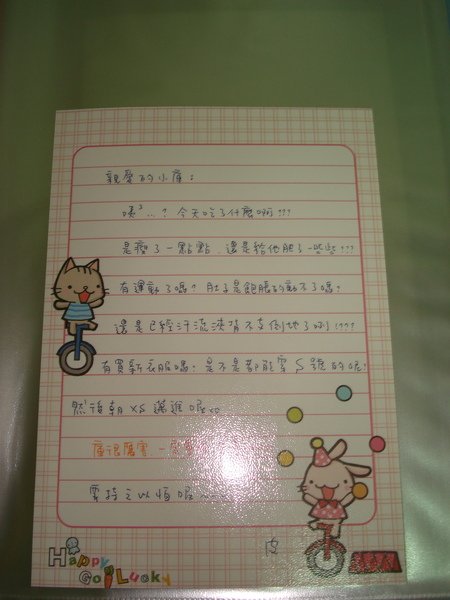 親愛的小廢：
咦³…？今天吃了什麼啊???
是瘦了一點點、還是給他胖了一些些???
有運動了嗎？肚子是飽脹的動不了嗎？
還是已經汗流浹背不支倒地了咧!???
有買新衣服嗎？是不是都能穿S號的呢?
然後朝XS邁進喔
很厲害一
要持之以恆喔~~~
Happy
Go Lucky